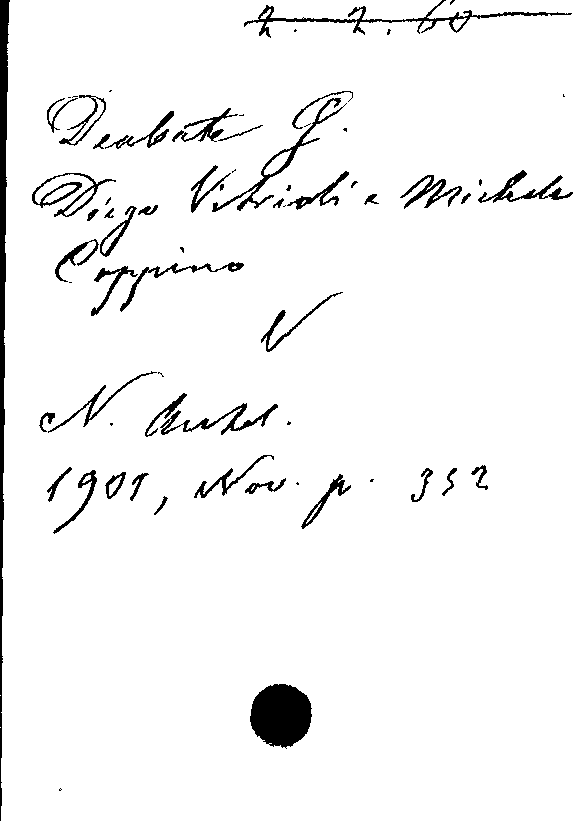 2. 2. 60
Deabate G.
Diego Vitrioli e Michele
Coppino
V
N. Antol.
1901, Nov. p. 352